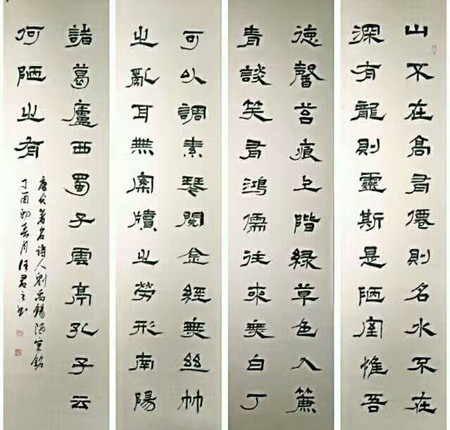 山不在高有僊則名水不在
深有龍則靈斯是陋室惟吾
德馨苔痕上階綠草色入簾
青談笑有鴻儒往來無白丁
可以調素琴閱金經無絲竹
之亂耳無案牘之勞形南陽
諸葛廬西蜀子雲亭孔子云
何陋之有
唐代著名诗人劉禹錫陋室銘
丁酉初春月